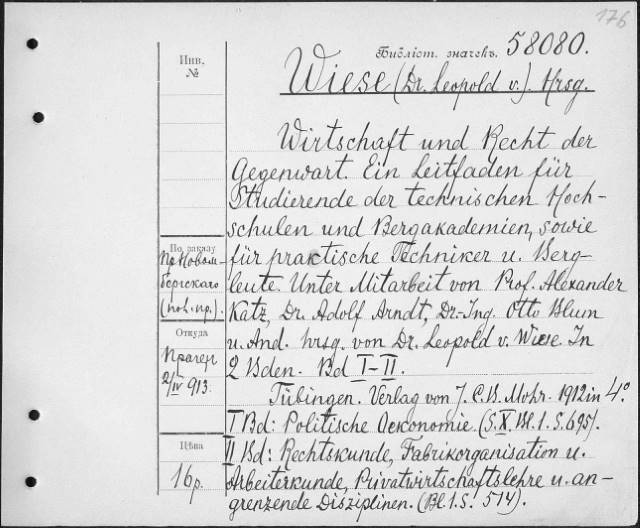 176
Библіот. значекъ. 58080.
Инв.
№
Wiese (Dr. Leopold v.). Hrsg.
Wirtschaft und Recht der
Gegenwart. Ein Leitfaden für
Studierende der technischen Hoch-
schulen und Bergakademien, sowie
für praktische Techniker u. Berg-
leute. Unter Mitarbeit von Prof. Alexander
Katz, Dr. Adolf Arndt, Dr.-Ing. Otto Blum
u. And. hrsg. von Dr. Leopold v. Wiese. In
2 Bden. Bd I-II.
Tübingen. Verlag von J. C. B. Mohr. 1912 in 4°
I Bd: Politische Oekonomie. (S. X. Bl. 1. S. 695).
II Bd: Rechtskunde, Fabrikorganisation u.
Arbeiterkunde, Privatwirtschaftslehre u. an-
grenzende Disziplinen. (Bl. 1. S. 514).
По заказу
Пр. Новом-
бергскаго
Откуда
Прагер
2/IV 913.
Цѣна
16 р.